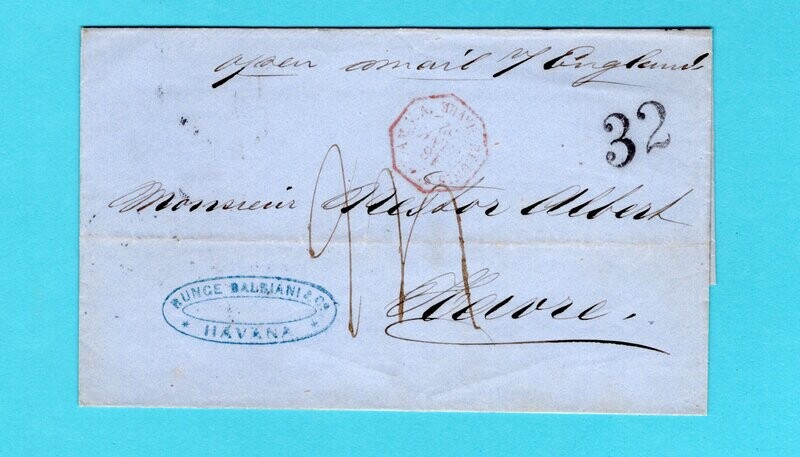 open mail v/ England
32
Monsieur Nestor Albert
Havre.
RUNGE BALBIANI & Co
HAVANA